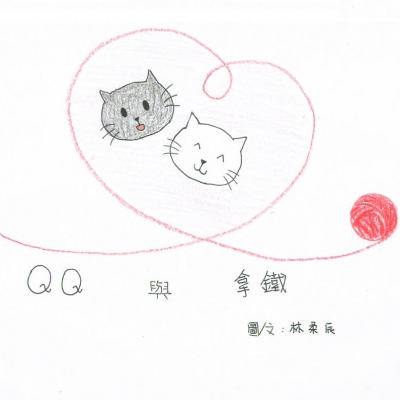 QQ 與 拿鐵
圖/文：林柔辰